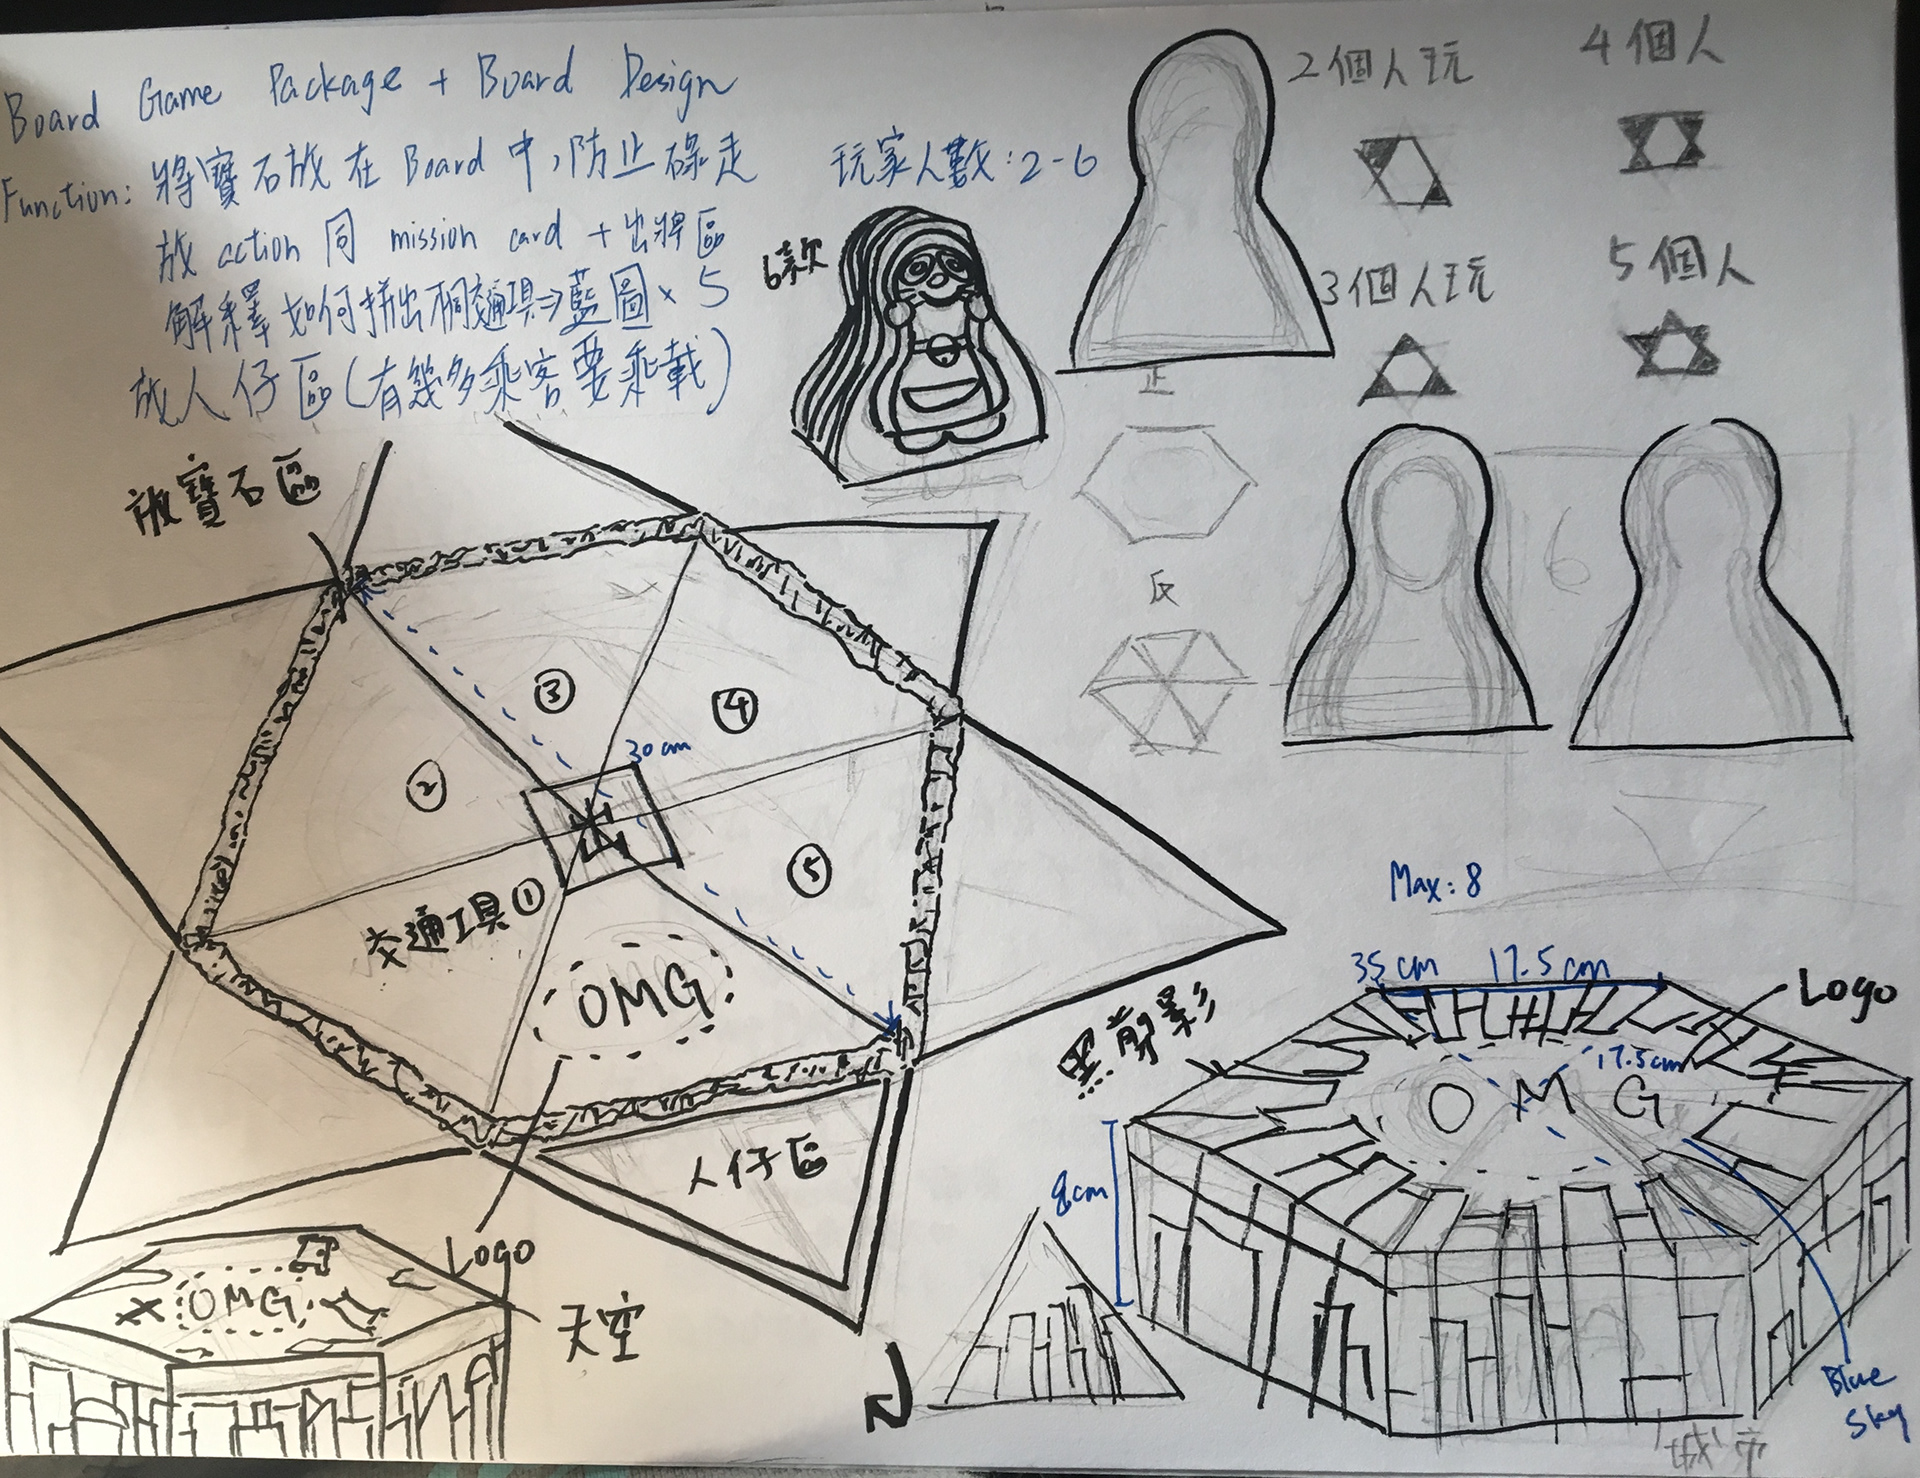 Board Game Package + Board Design
Function: 將寶石放在 Board 中,防止碌走
放 action 同 mission card + 出牌區
解釋如何拼出不同交通工具⇒藍圖 × 5
放人仔區(有幾多乘客要乘載)
玩家人數:2-6
6款
2個人玩
4個人
3個人玩
5個人
正
反
6
放寶石區
③
④
30cm
②
⑤
交通工具①
OMG
Logo
人仔區
Max: 8
35cm 17.5cm
Logo
黑剪影
17.5cm
OMG
8cm
OMG
天空
Blue
Sky
城市